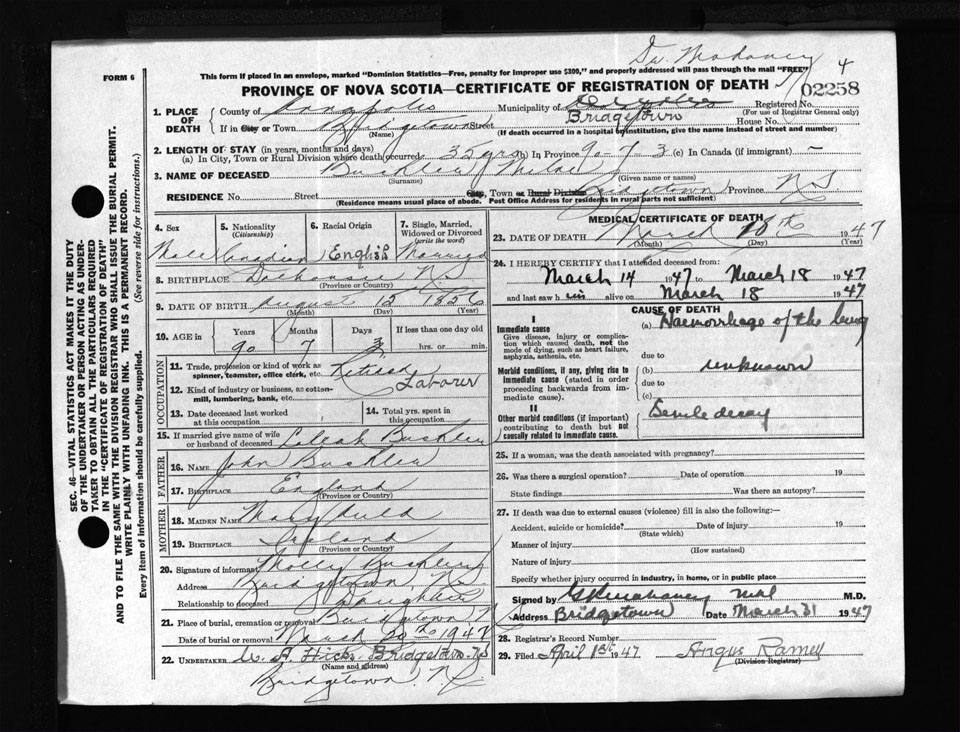 Dr. Mahaney
4
FORM 6
This form if placed in an envelope, marked "Dominion Statistics—Free, penalty for improper use $300," and properly addressed will pass through the mail "FREE"
02258
PROVINCE OF NOVA SCOTIA—CERTIFICATE OF REGISTRATION OF DEATH
1. PLACE OF DEATH County of Annapolis Municipality of Registered No.
(For use of Registrar General only)
If in City or Town Bridgetown Street Bridgetown House No.
(Name) (If death occurred in a hospital or institution, give the name instead of street and number)
2. LENGTH OF STAY (in years, months and days)
(a) In City, Town or Rural Division where death occurred 35 yrs (b) In Province 90-7-3 (c) In Canada (if immigrant) —
3. NAME OF DECEASED
(Surname) (Given name or names)
RESIDENCE No. Street City, Town or Rural Division Bridgetown Province N.S.
(Residence means usual place of abode. Post Office Address for residents in rural parts not sufficient)
4. Sex
5. Nationality (Citizenship)
6. Racial Origin
7. Single, Married, Widowed or Divorced (write the word)
Male Canadian English Married
8. BIRTHPLACE Dalhousie N.S.
(Province or Country)
9. DATE OF BIRTH August 15 1856
(Month) (Day) (Year)
10. AGE in Years Months Days If less than one day old
90 7 3 hrs. or min.
OCCUPATION
11. Trade, profession or kind of work as spinner, teamster, office clerk, etc. Retired
12. Kind of industry or business, as cotton-mill, lumbering, bank, etc. Labourer
13. Date deceased last worked at this occupation
14. Total yrs. spent in this occupation
15. If married give name of wife or husband of deceased
FATHER
16. NAME John
17. BIRTHPLACE England
(Province or Country)
MOTHER
18. MAIDEN NAME Mary Auld
19. BIRTHPLACE
(Province or Country)
20. Signature of informant Molly
Address Bridgetown N.S.
Relationship to deceased Daughter
21. Place of burial, cremation or removal Bridgetown N.S.
Date of burial or removal March 20th 1947
22. UNDERTAKER A. Hicks Bridgetown N.S.
(Name and address)
Bridgetown. N.S.
MEDICAL CERTIFICATE OF DEATH
23. DATE OF DEATH March 18th 1947
(Month) (Day) (Year)
24. I HEREBY CERTIFY that I attended deceased from:
March 14 1947 to March 18 1947
and last saw him alive on March 18 1947
CAUSE OF DEATH
I
Immediate cause
Give disease, injury or complication which caused death, not the mode of dying, such as heart failure, asphyxia, asthenia, etc.
(a) Haemorrhage of the lung
due to
Morbid conditions, if any, giving rise to immediate cause (stated in order proceeding backwards from immediate cause).
(b) unknown
due to
(c)
II
Other morbid conditions (if important) contributing to death but not causally related to immediate cause.
Senile decay
25. If a woman, was the death associated with pregnancy?
26. Was there a surgical operation? Date of operation 19
State findings Was there an autopsy?
27. If death was due to external causes (violence) fill in also the following:—
Accident, suicide or homicide? Date of injury 19
(State which)
Manner of injury
(How sustained)
Nature of injury
Specify whether injury occurred in industry, in home, or in public place
Signed by M.D.
Address Bridgetown Date March 31 1947
28. Registrar's Record Number
29. Filed April 1st 1947 Angus Ramey
(Division Registrar)
SEC. 46—VITAL STATISTICS ACT MAKES IT THE DUTY
OF THE UNDERTAKER OR PERSON ACTING AS UNDERTAKER TO OBTAIN ALL THE PARTICULARS REQUIRED
IN THE "CERTIFICATE OF REGISTRATION OF DEATH"
AND TO FILE THE SAME WITH THE DIVISION REGISTRAR WHO SHALL ISSUE THE BURIAL PERMIT.
WRITE PLAINLY WITH UNFADING INK. THIS IS A PERMANENT RECORD.
Every item of information should be carefully supplied. (See reverse side for instructions.)